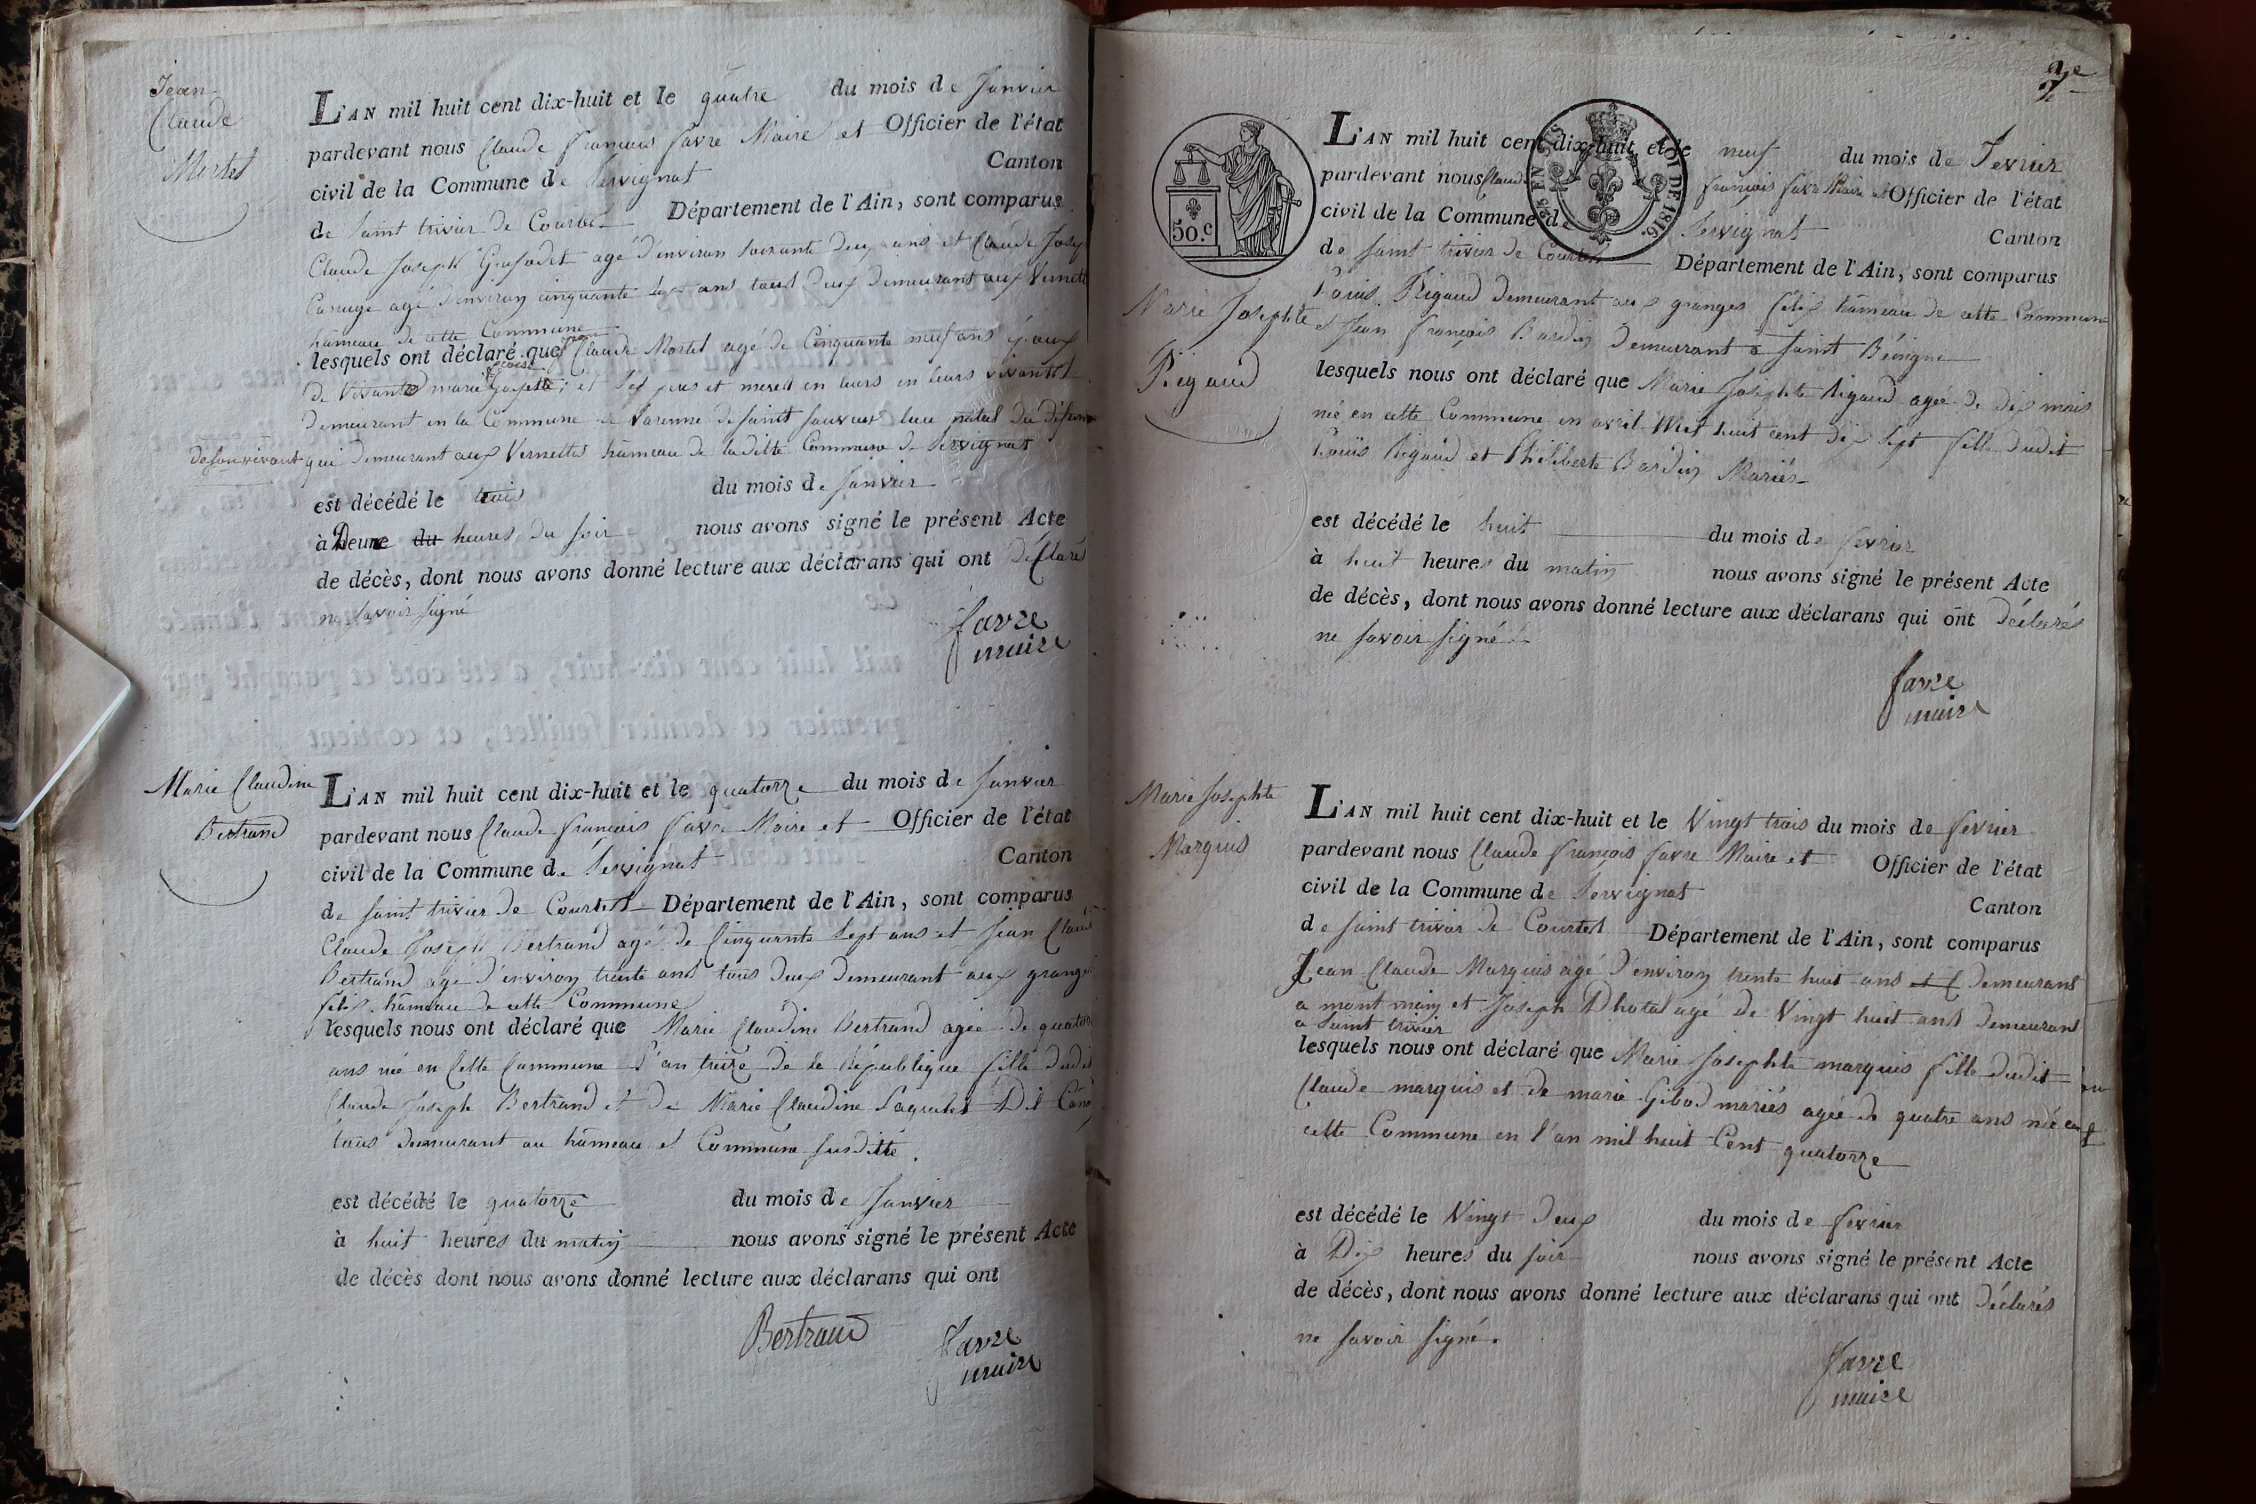 Jean
Claude
Mortel
L'AN mil huit cent dix-huit et le quatre du mois de Janvier
pardevant nous Claude francois favre Maire et Officier de l'état
civil de la Commune de Servignat Canton
de Saint trivier de Courtes Département de l'Ain, sont comparus
Claude Joseph agé d'environ soixante deux ans et Claude Joseph
agé d'environ cinquante ans tous deux demeurant aux Vernette
hâmeau de cette Commune
lesquels ont déclaré que Claude Mortel agé de Cinquante neuf ans époux
de vivante marie et ses peres et meres en leurs en leurs vivantes
demeurant en la Commune de Varenne de saint sauveur lieu natal du défunt
de son vivant qui demeurant aux Vernettes hâmeau de la ditte Commune de Servignat
est décédé le trois du mois de Janvier
à heures du soir nous avons signé le présent Acte
de décès, dont nous avons donné lecture aux déclarans qui ont déclaré
ne savoir signé
favre
maire
Marie Claudine
Bertrand
L'AN mil huit cent dix-huit et le quatorze du mois de Janvier
pardevant nous Claude francois favre Maire et Officier de l'état
civil de la Commune de Servignat Canton
de saint trivier de Courtes Département de l'Ain, sont comparus
Claude Joseph Bertrand agé de Cinquante sept ans et Jean Claude
Bertrand agé d'environ trente ans tous deux demeurant aux granges
felix hâmeau de cette Commune
lesquels nous ont déclaré que Marie Claudine Bertrand agée de quatorze
ans née en Cette Commune l'an treize de la République fille dudit
Claude Joseph Bertrand et de Marie Claudine
tous demeurant au hâmeau et Commune susditte.
est décédé le quatorze du mois de Janvier
à huit heures du matin nous avons signé le présent Acte
de décès dont nous avons donné lecture aux déclarans qui ont
Bertrand
favre
maire
2e
50.C
25 EN SUS
LOI DE 1816.
Marie Josephte
Rigaud
L'AN mil huit cent dix-huit et le neuf du mois de Fevrier
pardevant nous Claude françois favre Maire et Officier de l'état
civil de la Commune de Servignat Canton
de saint trivier de Courtes Département de l'Ain, sont comparus
Louis Rigaud demeurant aux granges felix hâmeau de cette Commune
et Jean françois Bardin demeurant a Saint Bénigne
lesquels nous ont déclaré que Marie Josephte Rigaud agée de dix mois
née en cette Commune en avril Mil huit cent dix sept fille dudit
Louis Rigaud et Philiberte Bardin Mariés
est décédé le huit du mois de fevrier
à huit heures du matin nous avons signé le présent Acte
de décès, dont nous avons donné lecture aux déclarans qui ont déclarés
ne savoir signé
favre
maire
Marie Josephte
Marquis
L'AN mil huit cent dix-huit et le Vingt trois du mois de fevrier
pardevant nous Claude françois favre Maire et Officier de l'état
civil de la Commune de Servignat Canton
de saint trivier de Courtes Département de l'Ain, sont comparus
Jean Claude Marquis agé d'environ trente huit ans demeurant
a et Joseph agé de Vingt huit ans demeurant
a Saint trivier
lesquels nous ont déclaré que Marie Josephte marquis fille dudit
Claude marquis et de marie Gibod mariés agée de quatre ans née en
cette Commune en l'an mil huit Cent quatorze
est décédé le Vingt deux du mois de fevrier
à Dix heures du soir nous avons signé le présent Acte
de décès, dont nous avons donné lecture aux déclarans qui ont déclarés
ne savoir signé.
favre
maire